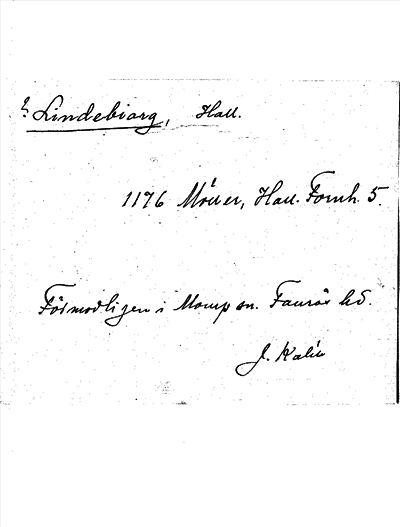 ? Lindebiarg, Hall.
1176 Möller, Hall. Fornh. 5.
Förmodligen i Morup sn. Faurås hd.
J. Kalén